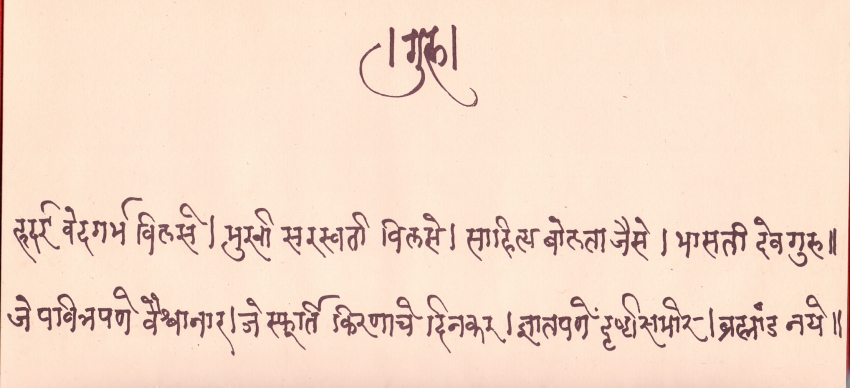 । गुरु ।
हृदई वेदगर्भ विलसे । मुखी सरस्वती विलसे । साहित्य बोलता जैसे । भासती देवगुरु ॥
जे पवित्रपणे वैश्वानार । जे स्फूर्ति किरणाचे दिनकर । ज्ञातपणे दृष्टीसमोर । ब्रह्मांड नये ॥